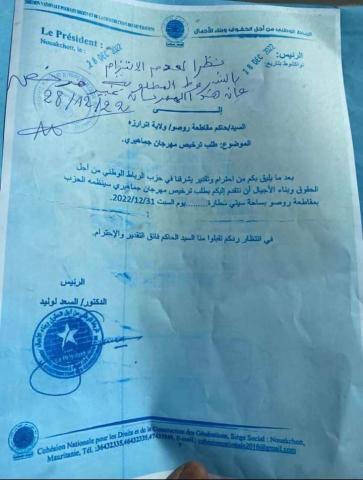 الرباط الوطني من أجل الحقوق وبناء الأجيال
Le Président :
الرئيس:
Nouakchott,
28 DEC 2022
نواكشوط بتاريخ:
28 DEC 2022
نظرا لعدم الالتزام
بالشروط المطلوبة
فإن هذا المهرجان غير مرخص
28/12/22
السيد/حاكم مقاطعة روصو/ ولاية اترارزة
الموضوع: طلب ترخيص مهرجان جماهيري
بعد ما يليق بكم من احترام وتقدير يشرفنا في حزب الرباط الوطني من أجل
الحقوق وبناء الأجيال أن نتقدم إليكم بطلب ترخيص مهرجان جماهيري سينظمه الحزب
بمقاطعة روصو بساحة سيتي سطارة........يوم السبت 2022/12/31.
في انتظار ردكم تقبلوا منا السيد الحاكم فائق التقدير والإحترام.
الرئيس
الدكتور/ السعد لوليد
Le Président
Cohésion Nationale pour les Droits et de la Construction des Générations, Siège Social : Nouakchott,
Mauritanie, Tél :36432335,46432335,